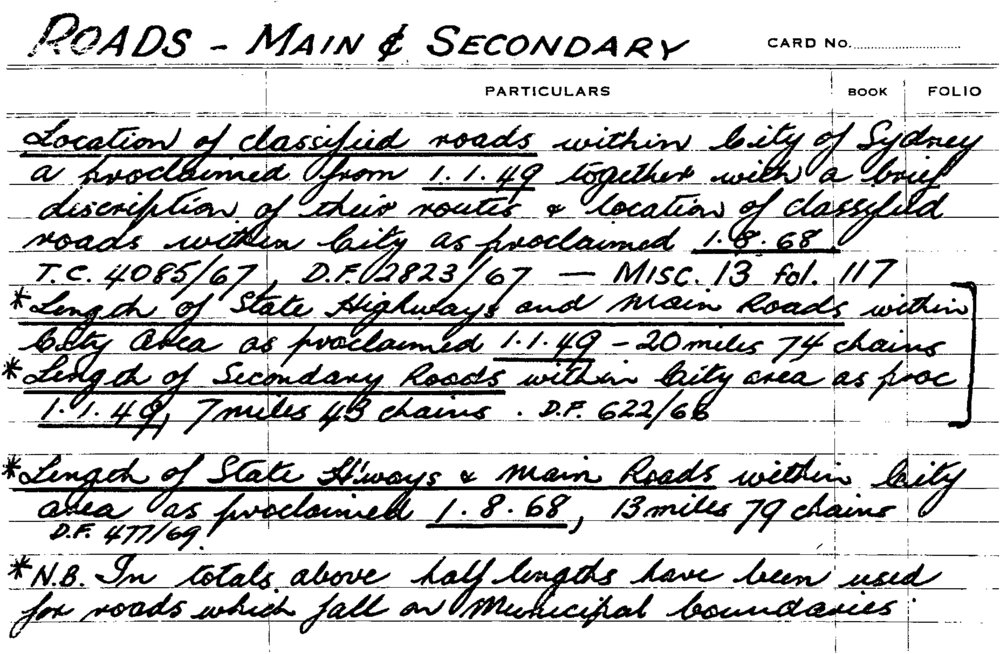 ROADS - MAIN & SECONDARY CARD No.
PARTICULARS BOOK FOLIO
Location of classified roads within City of Sydney
a proclaimed from 1.1.49 together with a brief
discription of their routes & location of classified
roads within City as proclaimed 1.8.68
T.C. 4085/67, D.F. 2823/67 — MISC. 13 fol. 117
*Length of State Highways and Main Roads within
City area as proclaimed 1.1.49 - 20 miles 74 chains
*Length of Secondary Roads within City area as proc
1.1.49, 7 miles 43 chains. D.F. 622/66
*Length of State H'ways & Main Roads within City
area as proclaimed 1.8.68, 13 miles 79 chains
D.F. 477/69.
*N.B. In totals above half lengths have been used
for roads which fall on Municipal boundaries